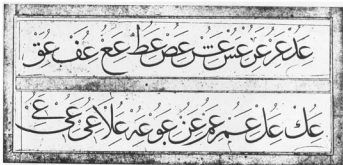 عد عر عز عس عش عص عط عع عف عق
عك عل عم عم عن عو عه علا عى عى